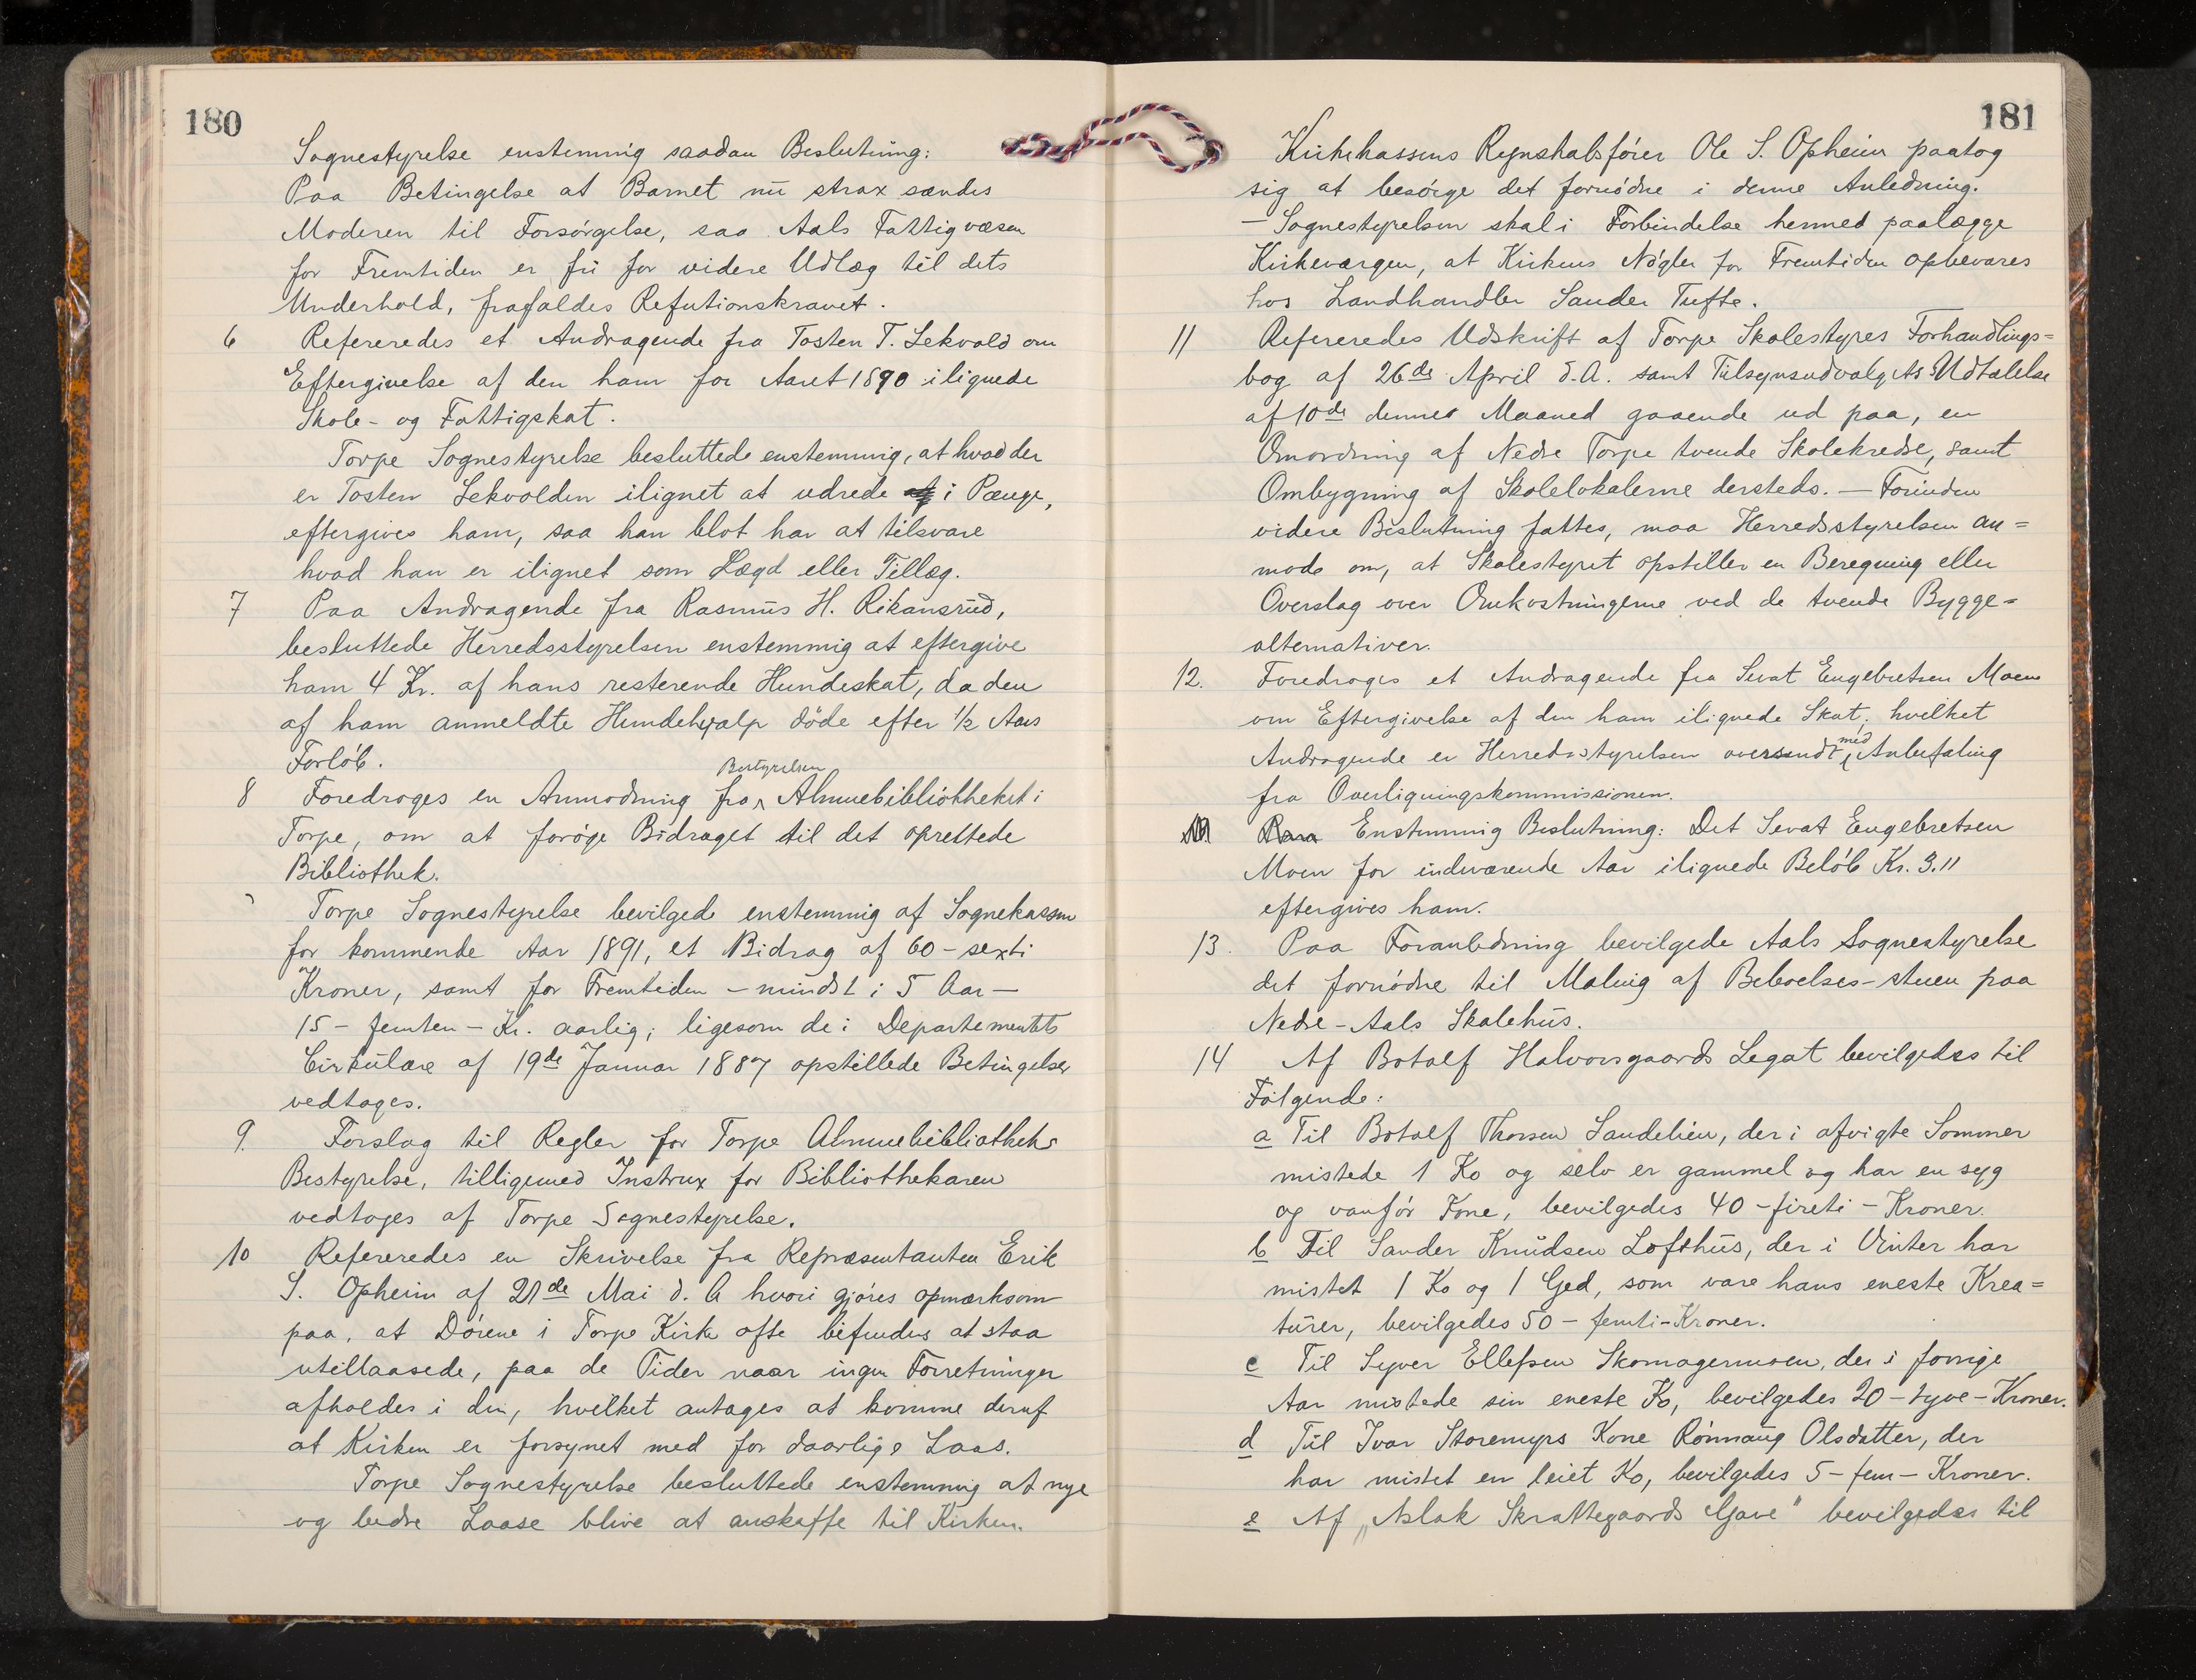 180
Sognestyrelse enstemmig saadan Beslutning:
Paa Betingelse at Barnet nu strax sændes
Moderen til Forsørgelse, saa Aals Fattigvæsen
for Fremtiden er fri for videre Udlæg til dets
Underhold, frafaldes Refutionskravet.
6 Refereredes et Andragende fra Tosten T. Lekvold om
Eftergivelse af den ham for Aaret 1890 ilignede
Skole- og Fattigskat.
Torpe Sognestyrelse besluttede enstemmig, at hvad der
er Tosten Lekvolden ilignet at udrede i Pænge,
eftergives ham, saa han blot har at tilsvare
hvad han er ilignet som Lægd eller Tillæg.
7 Paa Andragende fra Rasmus H. Rikansrud,
besluttede Herredsstyrelsen enstemmig at eftergive
ham 4 Kr. af hans resterende Hundeskat, da den
af ham anmeldte Hundehvalp døde efter 1/2 Aars
Forløb.
8 Foredroges en Anmodning fra Bestyrelsen Almuebibliotheket i
Torpe, om at forøge Bidraget til det oprettede
Bibliothek.
Torpe Sognestyrelse bevilgede enstemmig af Sognekassen
for kommende Aar 1891, et Bidrag af 60 - sexti
Kroner, samt for Fremtiden - mindst i 5 Aar -
15 - femten - Kr. aarlig; ligesom de i Departementets
Cirkulære af 19de Januar 1887 opstillede Betingelser
vedtages.
9. Forslag til Regler for Torpe Almuebibliotheks
Bestyrelse, tilligemed Instrux for Bibliothekaren
vedtoges af Torpe Sognestyrelse.
10 Refereredes en Skrivelse fra Repræsentanten Erik
S. Opheim af 21de Mai d. A hvori gjøres opmærksom
paa, at Dørene i Torpe Kirke ofte befindes at staa
utillaasede, paa de Tider naar ingen Forretninger
afholdes i den, hvilket antages at komme deraf
at Kirken er forsynet med for daarlige Laas.
Torpe Sognestyrelse besluttede enstemmig at nye
og bedre Laase blive at anskaffe til Kirken.
181
Kirkekassens Regnskabsfører Ole S. Opheim paatog
sig at besørge det fornødne i denne Anledning.
- Sognestyrelsen skal i Forbindelse hermed paalægge
Kirkeværgen, at Kirkens Nøgler for Fremtiden opbevares
hos Landhandler Sander Tufte.
11 Refereredes Udskrift af Torpe Skolestyres Forhandlings=
bog af 26de April d.A. samt Tilsynsudvalgets Udtalelse
af 10de dennes Maaned gaaende ud paa, en
Omordning af Nedre Torpe tvende Skolekredse, samt
Ombygning af Skolelokalerne dersteds. - Forinden
videre Beslutning fattes, maa Herredsstyrelsen an=
mode om, at Skolestyret opstiller en Beregning eller
Overslag over Omkostningerne ved de tvende Bygge=
alternativer.
12. Foredroges et Andragende fra Sevat Engebretsen Moen
om Eftergivelse af den ham ilignede Skat; hvilket
Andragende er Herredsstyrelsen oversendt med Anbefaling
fra Overligningskommissionen.
Enstemmig Beslutning: Det Sevat Engebretsen
Moen for indeværende Aar ilignede Beløb Kr. 3.11
eftergives ham.
13. Paa Foranledning bevilgede Aals Sognestyrelse
det fornødne til Maling af Beboelses-stuen paa
Nedre-Aals Skolehus.
14 Af Botolf Halvorsgaards Legat bevilgedes til
Følgende:
a Til Botolf Thorsen Sandelien, der i afvigte Sommer
mistede 1 Ko og selv er gammel og har en syg
og vanfør Kone, bevilgedes 40 - firti - Kroner.
b Til Sander Knudsen Lofthus, der i Vinter har
mistet 1 Ko og 1 Ged, som vare hans eneste Krea=
turer, bevilgedes 50 - femti - Kroner.
c Til Syver Ellefsen Skomagermoen, der i forrige
Aar mistede sin eneste Ko, bevilgedes 20 - tyve - Kroner.
d Til Ivar Storemyrs Kone Rønnaug Olsdatter, der
har mistet en leiet Ko, bevilgedes 5 - fem - Kroner.
e Af „Aslak Skrattegaards Gave" bevilgedes til